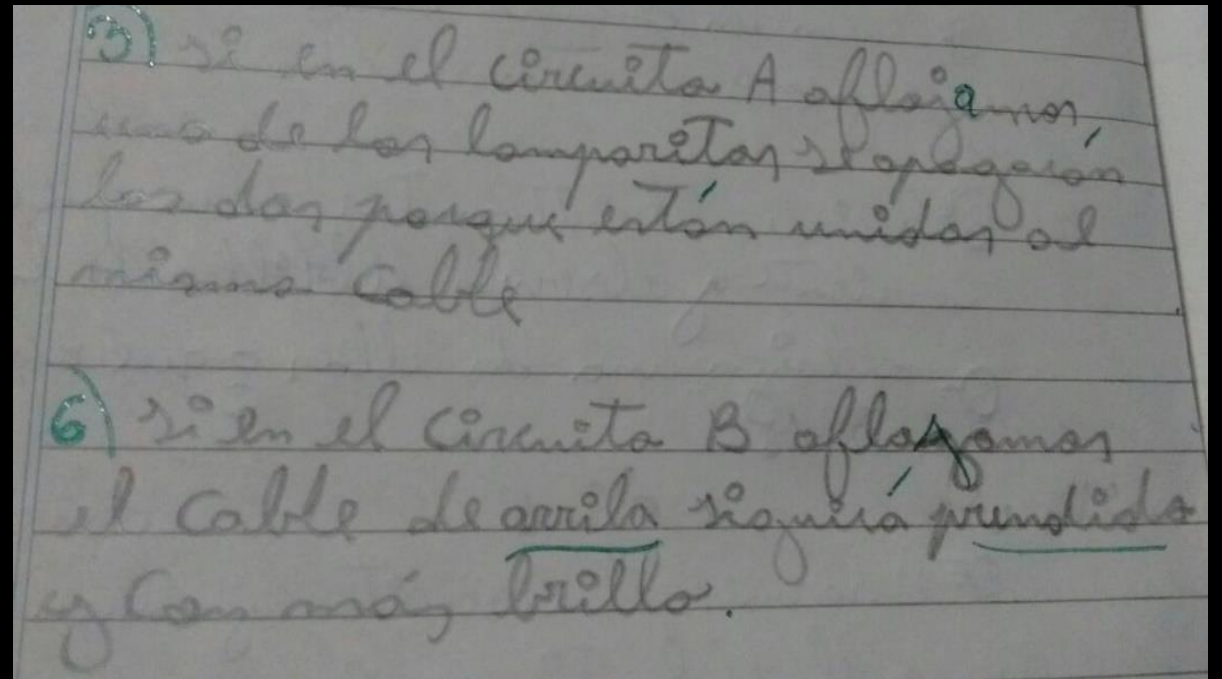 3) si en el circuito A aflojamos,
una de las lamparitas se apagarán
las dos porqué están unidas al
mismo cable
6) si en el circuito B aflojamos
el cable de arriba seguirá prendida
y con más brillo.